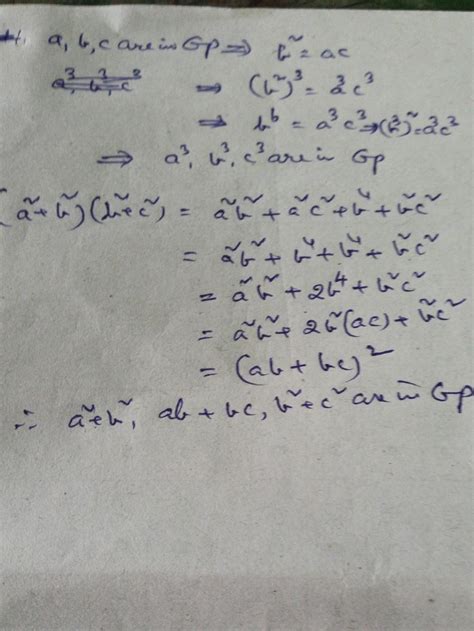 a, b, c are in Gp ⇒ b² = ac
a³, b³, c³ ⇒ (b²)³ = a³c³
⇒ b⁶ = a³c³ ⇒ (b³)² = a³c³
⇒ a³, b³, c³ are in Gp
(a²+b²)(b²+c²) = a²b² + a²c² + b⁴ + b²c²
= a²b² + b⁴ + b⁴ + b²c²
= a²b² + 2b⁴ + b²c²
= a²b² + 2b²(ac) + b²c²
= (ab + bc)²
∴ a²+b², ab + bc, b²+c² are in Gp